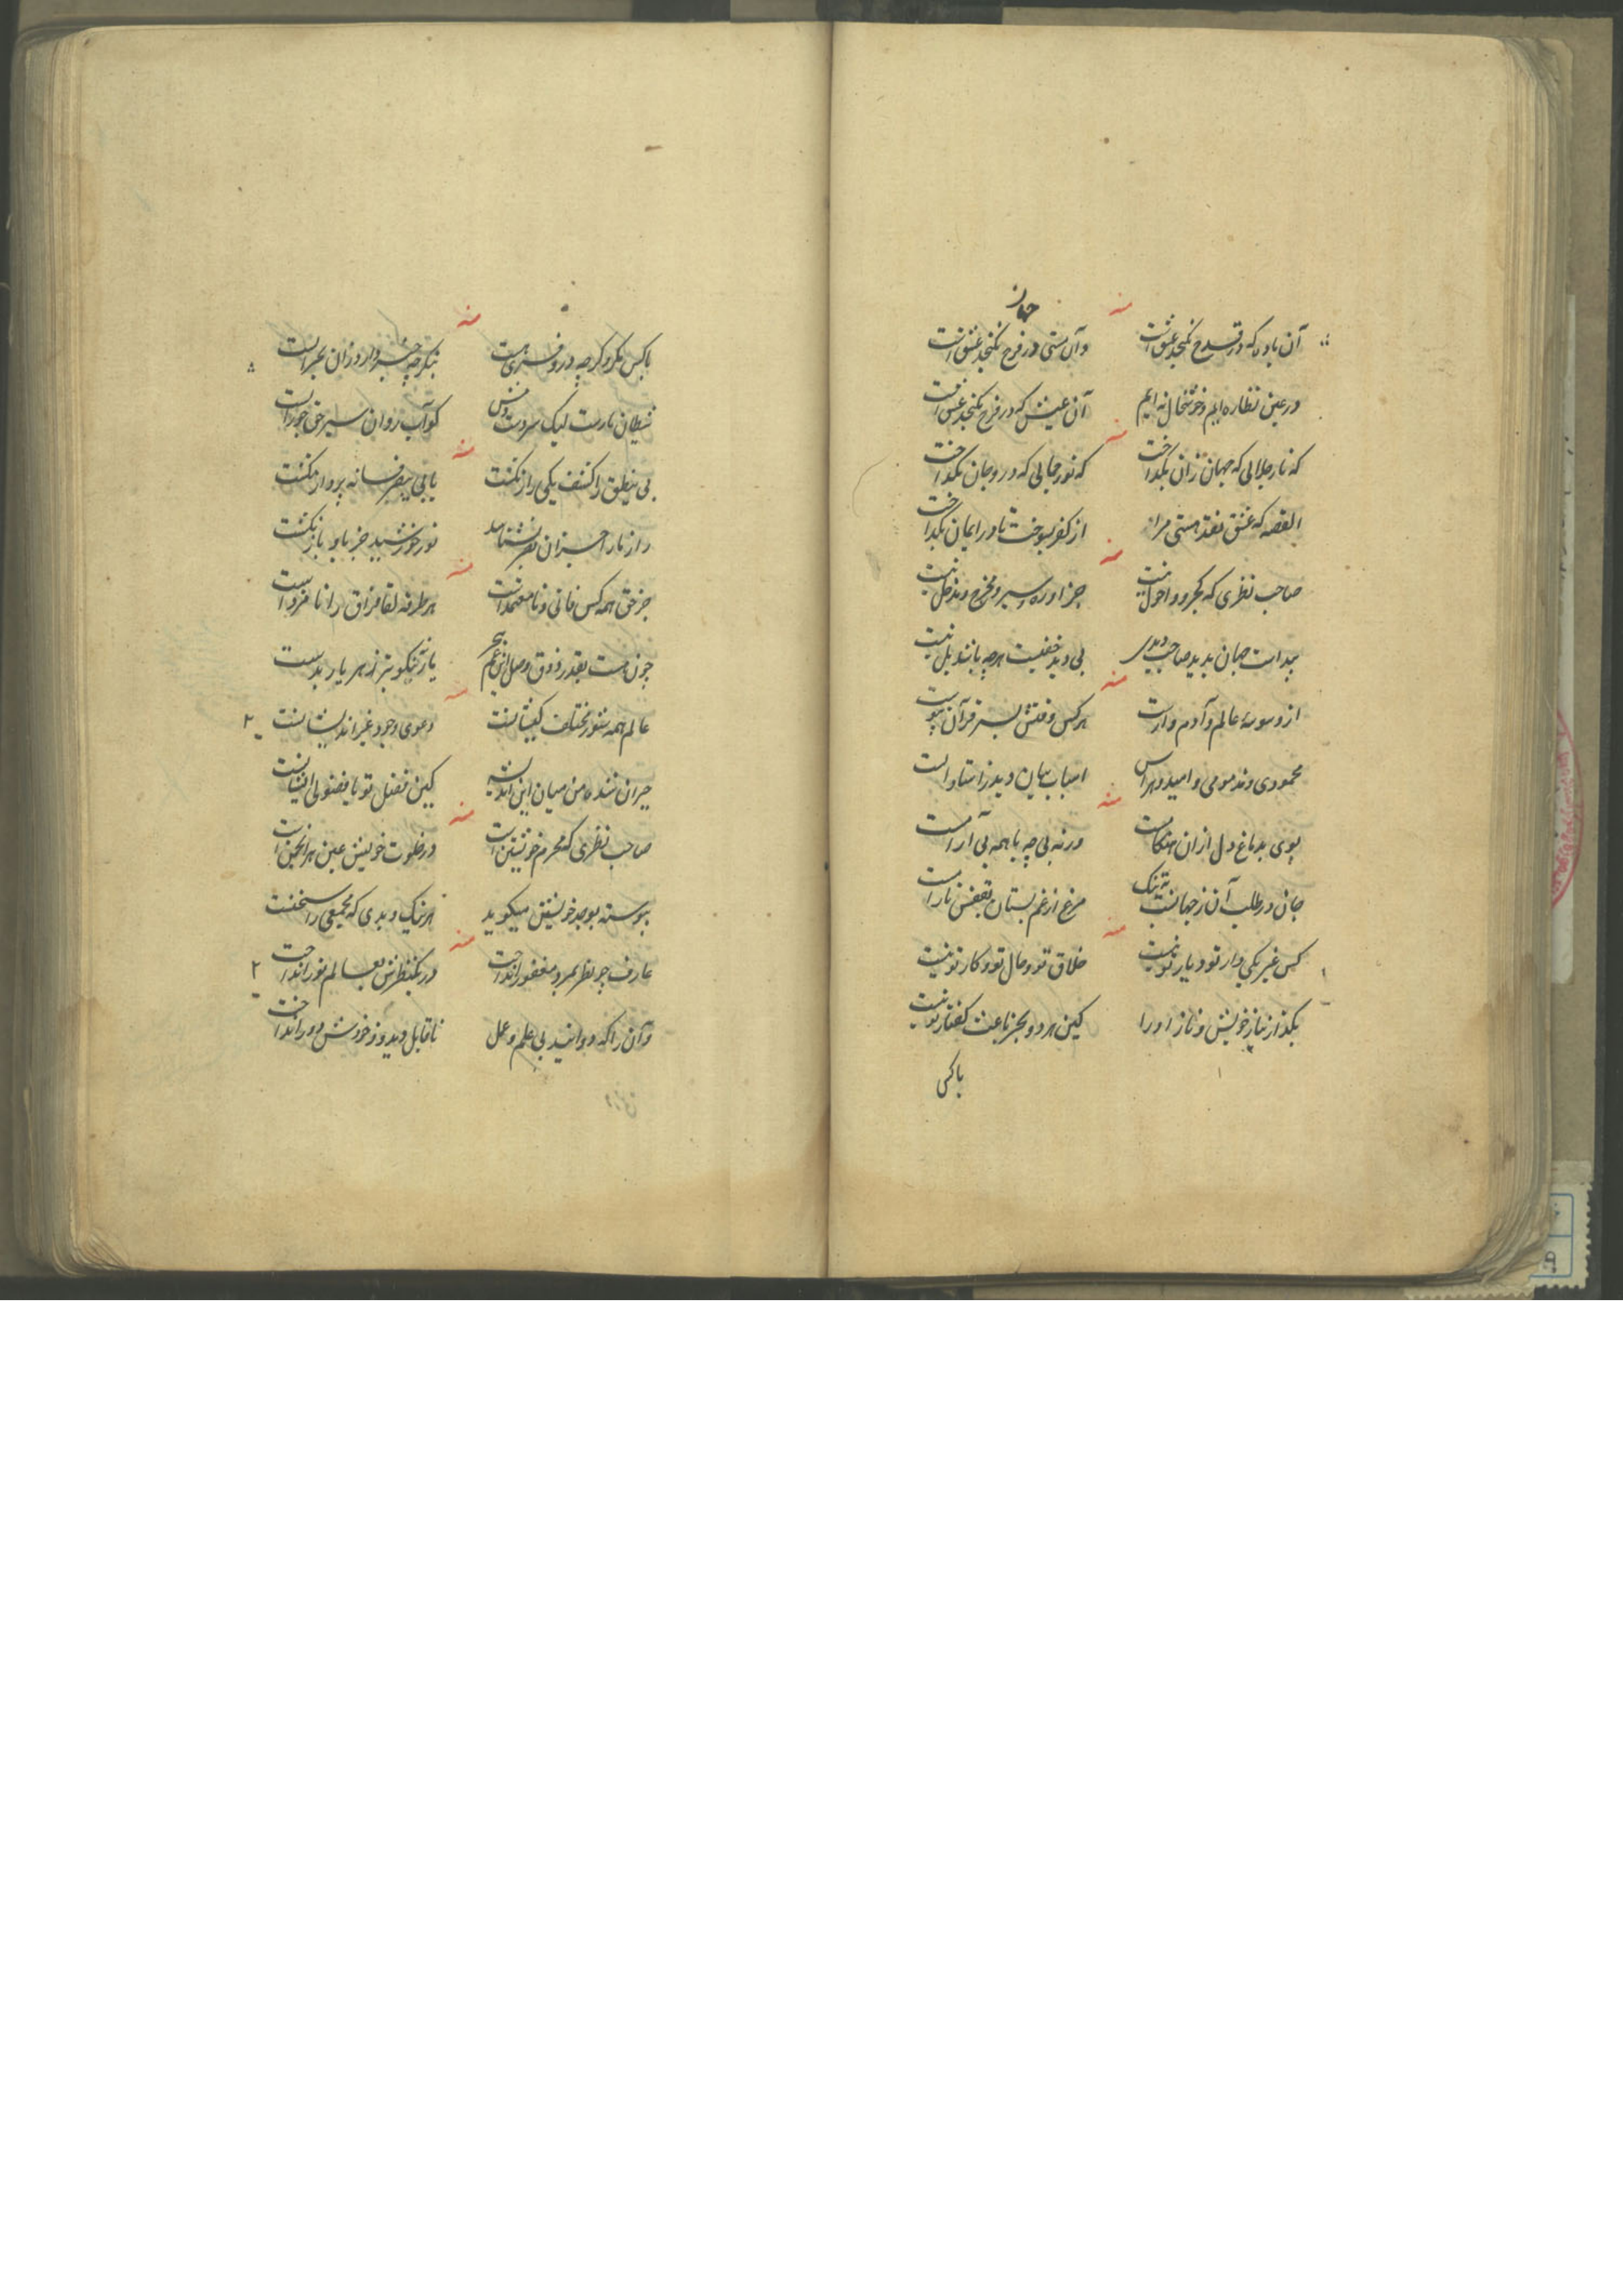 منه
جهان
آن باده که در قدح نگنجد عشق است
وان مستی در فرح نگنجد عشق است
در عین نظاره ایم و خوشحال نه ایم
آن عیش که در فرح نگنجد عشق است
منه
که نار جلالی که جهان زان بگداخت
که نور جمالی که درو جان بگداخت
القصه که عشق نقد هستی مرا
از کفر بسوخت تا در ایمان بگداخت
منه
صاحب نظری که کجرو و احول نیست
جز او ره و سیر و مخرج و مدخل نیست
پیداست جهان بدید صاحب دیدی
بی دید حقیقت هرچه باشد بل نیست
منه
از وسوسه عالم و آدم وارست
هر کس وقتش بسر قرآن پیوست
محمودی و مذمومی و امید و هراس
اسباب بیان دید ز استاد است
منه
بوی بدماغ دل از ان
ورنه بی چه با همه بی آرامست
جان در طلب آن ز جهانست به تنک
مرغ از غم بستان بقفس نارامست
منه
کس غیر یکی دار تو و دیار تو نیست
خلاق تو و حال تو و کار تو نیست
بگذار نیاز خویش و ناز او را
کین هر دو بجز باعث گفتار تو نیست
باکس
منه
باکس مگرو گرچه درو
بنگر چه خبر دارد و زان
شیطان نارست لیک سردست
کو آب روان
منه
بی منطق را کشف یکی راز نگشت
یا بی پر فسانه پرواز نگشت
راز نار
نور خورشید جز باو باز نگشت
منه
جز حق همه کس فانی و نامعتمد است
هر طرفه لقا فراق را نامزد است
چون هست بقدر ذوق وصل این غم هجر
یار نیکو بتر ز هر یار بدست
منه
عالم همه شور مختلف کیشانست
دعوی وجود غیر اندیشانست
حیران شده من میان این اندیشه
کین فضل تو یا فضولی ایشانست
منه
صاحب نظری که محرم خویشتن است
در خلوت خویش عین هر انجمن است
پیوسته بوجد خویشتن میگوید
هر نیک و بدی که مجمعی را سخنست
منه
عارف چو نظر بمرد مغفور انداخت
در یک نظرش بعالم نور انداخت
وآن را که دوانید بی علم و عمل
ناقابل دید و ز خودش دور انداخت